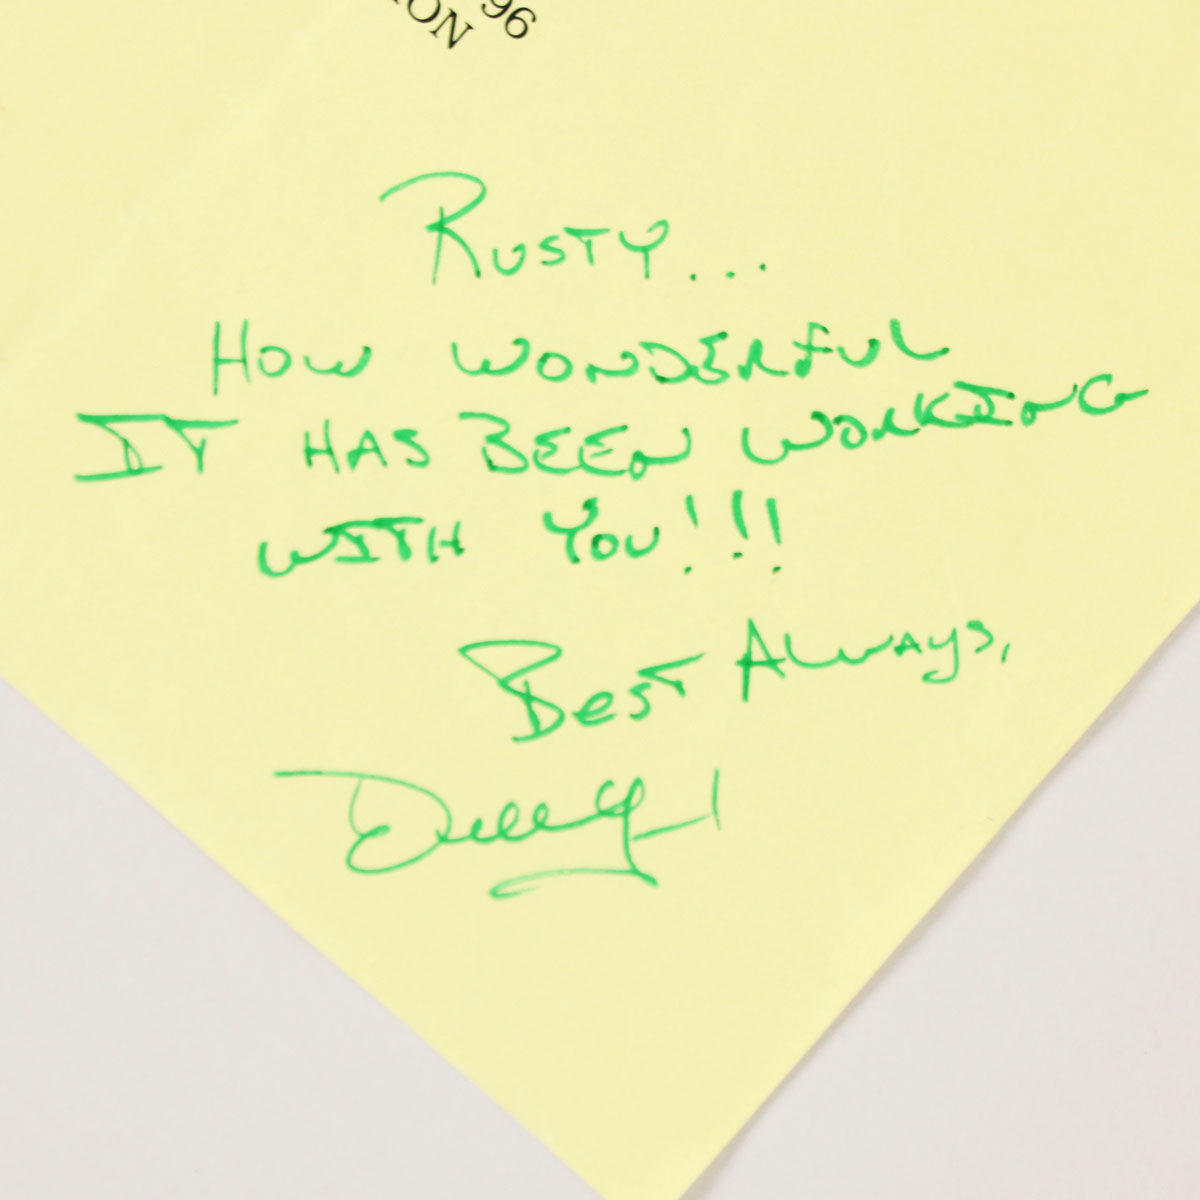 96
ION
RUSTY...
HOW WONDERFUL
IT HAS BEEN WORKING
WITH YOU!!!
Best Always,